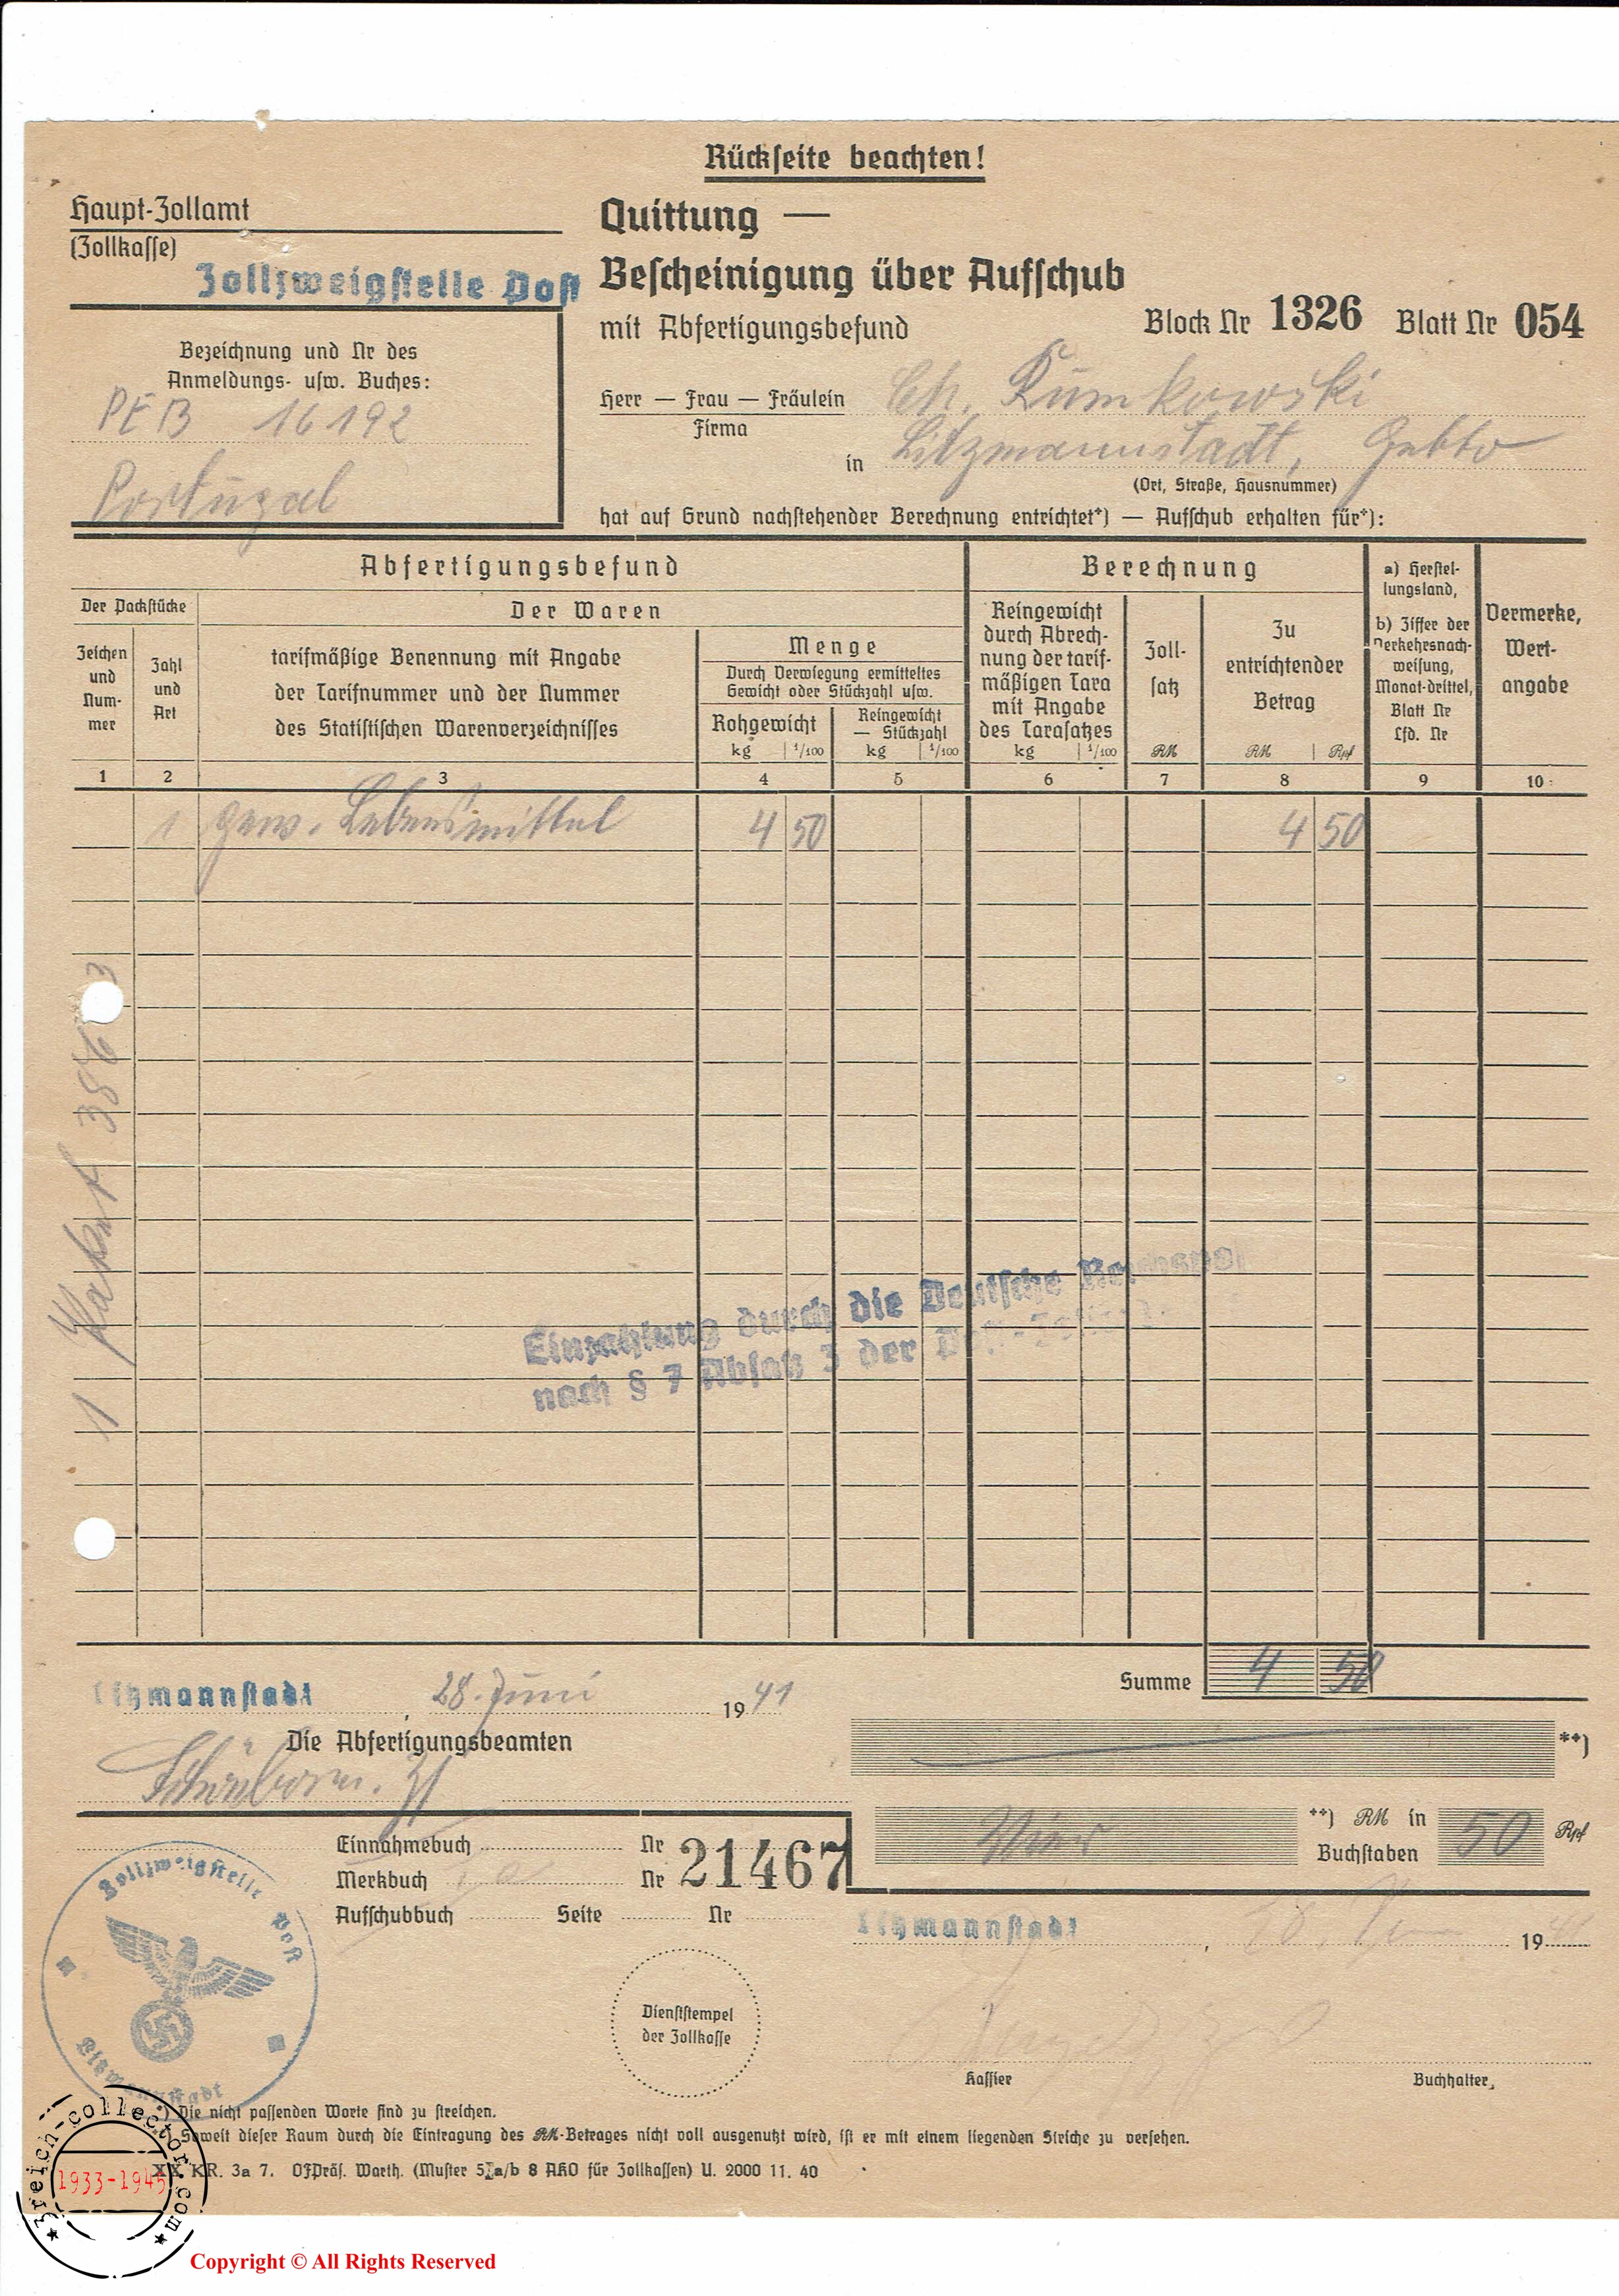 Rückseite beachten!
Haupt-Zollamt
(Zollkasse)
Zollzweigstelle Post
Quittung —
Bescheinigung über Aufschub
mit Abfertigungsbefund
Block Nr 1326 Blatt Nr 054
Bezeichnung und Nr des
Anmeldungs- usw. Buches:
PEB 16192
Portugal
Herr — Frau — Fräulein
Firma
Ch. Rumkowski
in Litzmannstadt, Getto
(Ort, Straße, Hausnummer)
hat auf Grund nachstehender Berechnung entrichtet*) — Aufschub erhalten für*):
Abfertigungsbefund
Berechnung
a) Herstel-
lungsland,
b) Ziffer der
Verkehrsnach-
weisung,
Monat-drittel,
Blatt Nr
Lfd. Nr
Vermerke,
Wert-
angabe
Der Packstücke
Der Waren
Zeichen
und
Num-
mer
Zahl
und
Art
tarifmäßige Benennung mit Angabe
der Tarifnummer und der Nummer
des Statistischen Warenverzeichnisses
Menge
Durch Verwiegung ermitteltes
Gewicht oder Stückzahl usw.
Rohgewicht
kg 1/100
Reingewicht
— Stückzahl
kg 1/100
Reingewicht
durch Abrech-
nung der tarif-
mäßigen Tara
mit Angabe
des Tarasatzes
kg 1/100
Zoll-
satz
RM
Zu
entrichtender
Betrag
RM Rpf
1 2 3 4 5 6 7 8 9 10
1 gew. Lebensmittel 4 50 4 50
1 Paket
Einzahlung durch die Deutsche Reichspost
nach § 7 Absatz 3 der
Summe 4 50
Litzmannstadt, 28. Juni 1941
Die Abfertigungsbeamten
**)
Einnahmebuch Nr
Merkbuch Nr 21467
Aufschubbuch Seite Nr
Vier **) RM in
Buchstaben 50 Rpf
Litzmannstadt, 19
Zollzweigstelle Post
Litzmannstadt
Dienststempel
der Zollkasse
Kassier
Buchhalter
*) Die nicht passenden Worte sind zu streichen.
Soweit dieser Raum durch die Eintragung des RM-Betrages nicht voll ausgenutzt wird, ist er mit einem liegenden Striche zu versehen.
KR. 3a 7. OFPräs. Warth. (Muster 5 a/b 8 AKO für Zollkassen) U. 2000 11. 40
3reich-collector.com
1933-1945
Copyright © All Rights Reserved